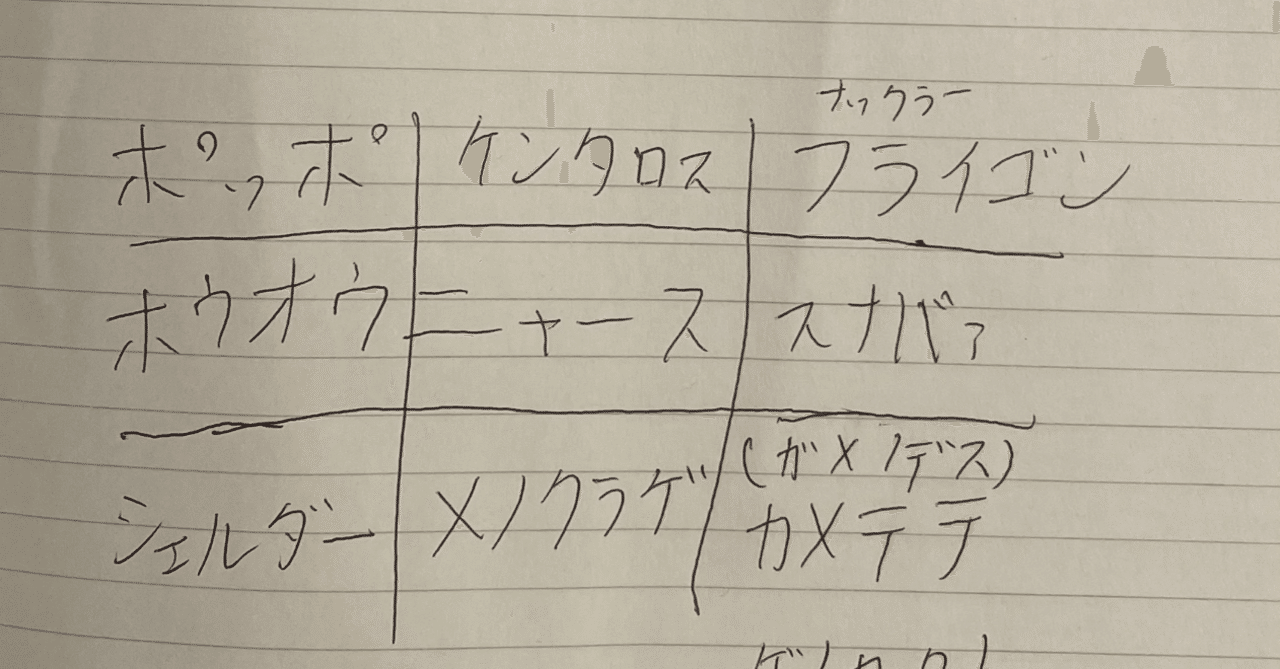 ナックラー
ポッポ ケンタロス フライゴン
ホウオウ ニャース スナバァ
(ガメノデス)
シェルダー メノクラゲ カメテテ